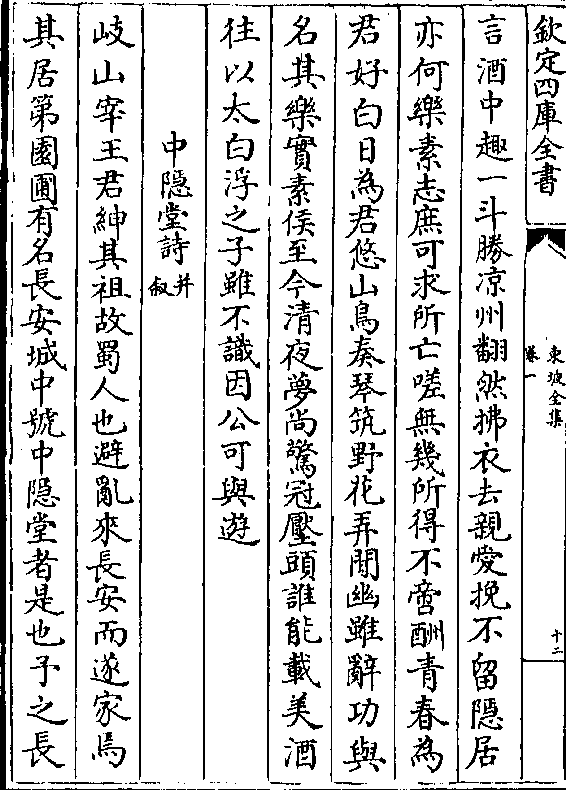 欽定四庫全書
東坡全集
卷一
十二
言酒中趣一斗勝凉州翻然拂衣去親愛挽不留隠居
亦何樂素志庶可求所亡嗟無幾所得不啻酬青春為
君好白日為君悠山鳥奏琴筑野花弄閒幽雖辭功與
名其樂實素侯至今清夜夢尚驚冠壓頭誰能載美酒
往以太白浮之子雖不識因公可與遊
中隠堂詩并叙
岐山宰王君紳其祖故蜀人也避亂來長安而遂家焉
其居第園圃有名長安城中號中隠堂者是也予之長